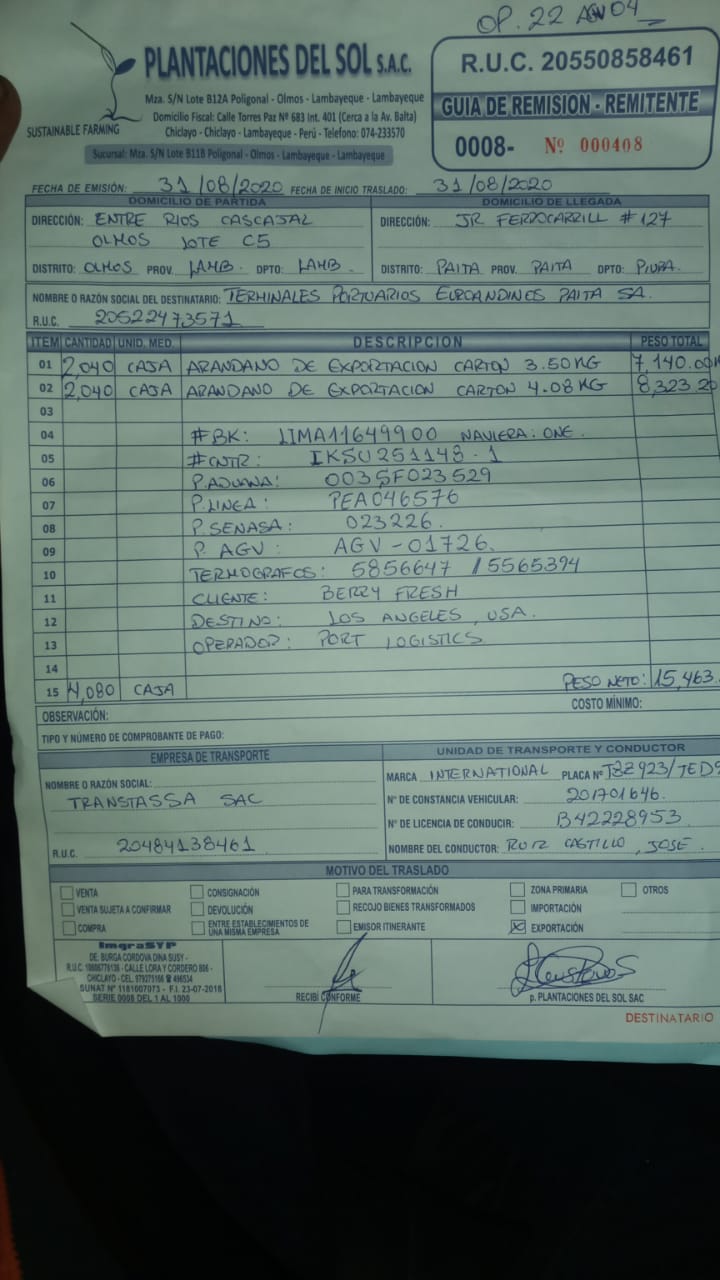 OP. 22 AGV 04
PLANTACIONES DEL SOL S.A.C.
Mza. S/N Lote B12A Poligonal - Olmos - Lambayeque - Lambayeque
Domicilio Fiscal: Calle Torres Paz Nº 683 Int. 401 (Cerca a la Av. Balta)
Chiclayo - Chiclayo - Lambayeque - Perú - Telefono: 074-233570
SUSTAINABLE FARMING
Sucursal: Mza. S/N Lote B11B Poligonal - Olmos - Lambayeque - Lambayeque
R.U.C. 20550858461
GUIA DE REMISION - REMITENTE
0008- Nº 000408
FECHA DE EMISIÓN: 31/08/2020 FECHA DE INICIO TRASLADO: 31/08/2020
DOMICILIO DE PARTIDA
DIRECCIÓN: ENTRE RIOS CASCAJAL
OLMOS LOTE C5
DISTRITO: OLMOS PROV. LAMB. DPTO: LAMB.
DOMICILIO DE LLEGADA
DIRECCIÓN: JR FERROCARRILL #127
DISTRITO: PAITA PROV. PAITA DPTO: PIURA.
NOMBRE O RAZÓN SOCIAL DEL DESTINATARIO: TERMINALES PORTUARIOS EUROANDINOS PAITA SA.
R.U.C. 20522473571
ITEM CANTIDAD UNID. MED. DESCRIPCION PESO TOTAL
01 2,040 CAJA ARANDANO DE EXPORTACION CARTON 3.50KG 7,140.00
02 2,040 CAJA ARANDANO DE EXPORTACION CARTON 4.08KG 8,323.20
03
04 #BK: LIMA11649900 NAVIERA: ONE.
05 #CNTR: IKSU251148-1
06 P.ADUANA: 003SF023529
07 P.LINEA: PEA046576
08 P.SENASA: 023226.
09 P. AGV: AGV-01726.
10 TERMOGRAFOS: 5856647 / 5565394
11 CLIENTE: BERRY FRESH
12 DESTINO: LOS ANGELES, USA.
13 OPERADOR: PORT LOGISTICS
14
15 4,080 CAJA PESO NETO: 15,463.
OBSERVACIÓN: COSTO MÍNIMO:
TIPO Y NÚMERO DE COMPROBANTE DE PAGO:
EMPRESA DE TRANSPORTE
NOMBRE O RAZÓN SOCIAL:
TRANSTASSA SAC
R.U.C. 20484138461
UNIDAD DE TRANSPORTE Y CONDUCTOR
MARCA INTERNATIONAL PLACA Nº T8Z923/TED9
Nº DE CONSTANCIA VEHICULAR: 201701646.
Nº DE LICENCIA DE CONDUCIR: B42228953
NOMBRE DEL CONDUCTOR: RUIZ CASTILLO, JOSE.
MOTIVO DEL TRASLADO
VENTA CONSIGNACIÓN PARA TRANSFORMACIÓN ZONA PRIMARIA OTROS
VENTA SUJETA A CONFIRMAR DEVOLUCIÓN RECOJO BIENES TRANSFORMADOS IMPORTACIÓN
COMPRA ENTRE ESTABLECIMIENTOS DE UNA MISMA EMPRESA EMISOR ITINERANTE EXPORTACIÓN
ImgraSYP
DE: BURGA CORDOVA DINA SUSY -
CALLE LORA Y CORDERO 806 -
CHICLAYO - CEL. 979375166 ☎ 496534
SUNAT Nº 1181007073 - F.I. 23-07-2018
SERIE 0008 DEL 1 AL 1000
RECIBÍ CONFORME
p. PLANTACIONES DEL SOL SAC
DESTINATARIO